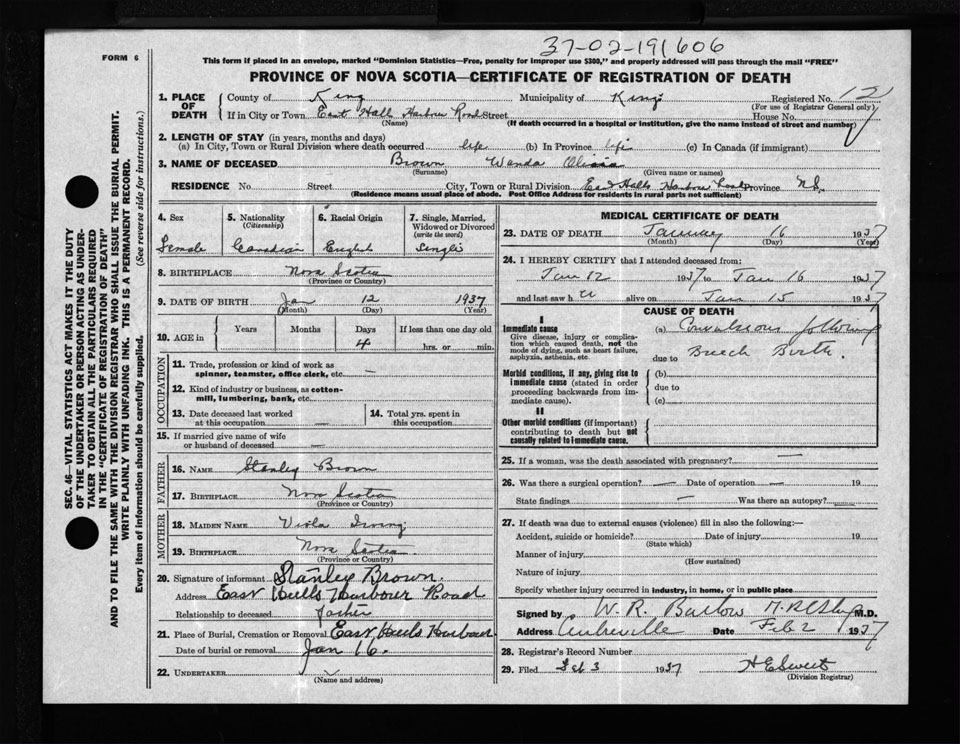 37-02-191606
FORM 6
This form if placed in an envelope, marked "Dominion Statistics—Free, penalty for improper use $300," and properly addressed will pass through the mail "FREE"
PROVINCE OF NOVA SCOTIA—CERTIFICATE OF REGISTRATION OF DEATH
SEC. 46—VITAL STATISTICS ACT MAKES IT THE DUTY
OF THE UNDERTAKER OR PERSON ACTING AS UNDER-
TAKER TO OBTAIN ALL THE PARTICULARS REQUIRED
IN THE "CERTIFICATE OF REGISTRATION OF DEATH"
AND TO FILE THE SAME WITH THE DIVISION REGISTRAR WHO SHALL ISSUE THE BURIAL PERMIT.
WRITE PLAINLY WITH UNFADING INK. THIS IS A PERMANENT RECORD.
Every item of information should be carefully supplied. (See reverse side for instructions.)
1. PLACE OF DEATH County of Kings Municipality of Kings Registered No. 12
(For use of Registrar General only)
If in City or Town East Halls Harbour Road Street House No.
(Name) (If death occurred in a hospital or institution, give the name instead of street and number)
2. LENGTH OF STAY (in years, months and days)
(a) In City, Town or Rural Division where death occurred life (b) In Province life (c) In Canada (if immigrant)
3. NAME OF DECEASED Brown Wanda
(Surname) (Given name or names)
RESIDENCE No. Street City, Town or Rural Division East Halls Harbour Road Province N.S.
(Residence means usual place of abode. Post Office Address for residents in rural parts not sufficient)
4. Sex 5. Nationality 6. Racial Origin 7. Single, Married,
(Citizenship) Widowed or Divorced
(write the word)
Female Canadian English Single
8. BIRTHPLACE Nova Scotia
(Province or Country)
9. DATE OF BIRTH Jan 12 1937
(Month) (Day) (Year)
10. AGE in Years Months Days If less than one day old
4 hrs. or min.
OCCUPATION
11. Trade, profession or kind of work as
spinner, teamster, office clerk, etc. —
12. Kind of industry or business, as cotton-
mill, lumbering, bank, etc.
13. Date deceased last worked 14. Total yrs. spent in
at this occupation this occupation
15. If married give name of wife
or husband of deceased —
FATHER
16. NAME Stanley Brown
17. BIRTHPLACE Nova Scotia
(Province or Country)
MOTHER
18. MAIDEN NAME Viola Irving
19. BIRTHPLACE Nova Scotia
(Province or Country)
20. Signature of informant Stanley Brown.
Address East Halls Harbour Road
Relationship to deceased father
21. Place of Burial, Cremation or Removal East Halls Harbour
Date of burial or removal Jan 16.
22. UNDERTAKER
(Name and address)
MEDICAL CERTIFICATE OF DEATH
23. DATE OF DEATH January 16 1937
(Month) (Day) (Year)
24. I HEREBY CERTIFY that I attended deceased from:
Jan 12 1937 to Jan 16 1937
and last saw her alive on Jan 15 1937
CAUSE OF DEATH
I
Immediate cause
Give disease, injury or complica-
tion which caused death, not the
mode of dying, such as heart failure,
asphyxia, asthenia, etc.
(a) Convulsions following
due to Breech Birth.
Morbid conditions, if any, giving rise to
immediate cause (stated in order
proceeding backwards from im-
mediate cause).
(b)
due to
(c)
II
Other morbid conditions (if important)
contributing to death but not
causally related to immediate cause.
25. If a woman, was the death associated with pregnancy? —
26. Was there a surgical operation? — Date of operation — 19
State findings — Was there an autopsy? —
27. If death was due to external causes (violence) fill in also the following:—
Accident, suicide or homicide? Date of injury 19
(State which)
Manner of injury
(How sustained)
Nature of injury
Specify whether injury occurred in industry, in home, or in public place
Signed by W. R. Barlow M.D.
Address Date Feb 2 1937
28. Registrar's Record Number
29. Filed Feb 3 1937 H E Sweet
(Division Registrar)